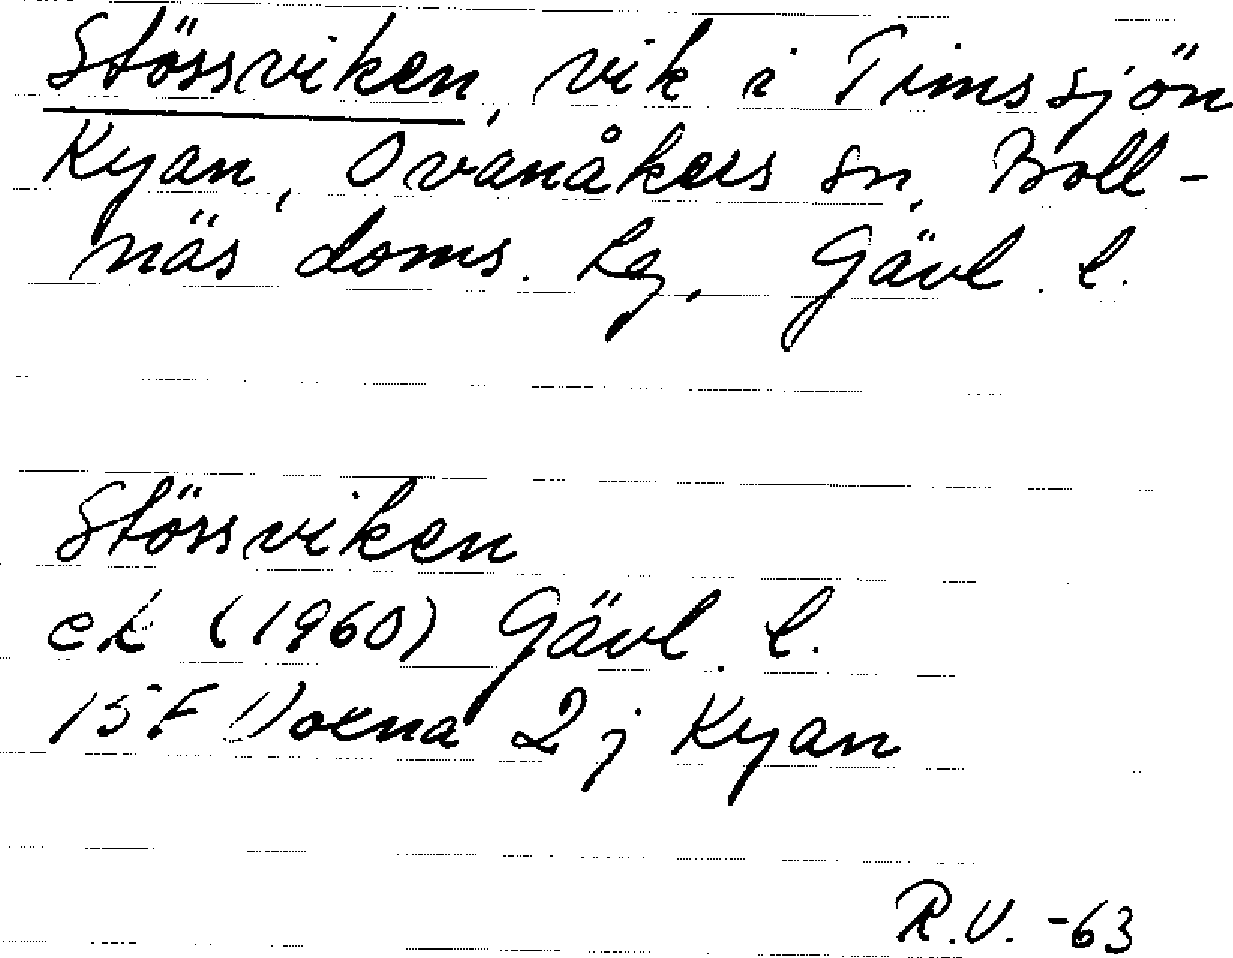 Stössviken, vik i Timssjön
Kyan, Ovanåkers sn, Boll-
näs doms. Lg, Gävl. l.
Stössviken
ek (1960) Gävl. l.
15F Voxna 2j Kyan
R.V. -63